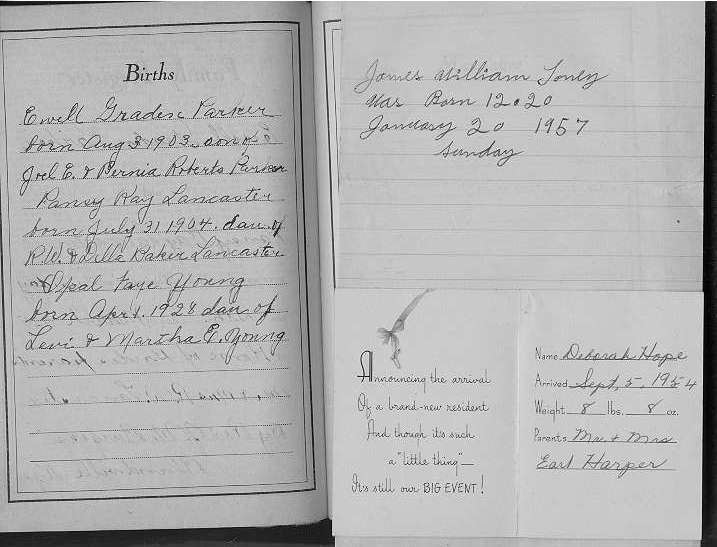 Births
Ewell Grades Parker
born Aug 3 1903. son of
Joel E. & Pernia Roberts Parker
Pansy Kay Lancaster
born July 31 1904. dau. of
R.W. & Della Baker Lancaster
Opal Faye Young
born Apr 1. 1928 dau of
Levi & Martha E. Young
James William Toney
Was Born 12.20
January 20 1957
Sunday
Announcing the arrival
Of a brand-new resident
And though it's such
a "little thing"—
It's still our BIG EVENT!
Name Deborah Hope
Arrived Sept, 5, 1954
Weight 8 lbs. 8 oz.
Parents Mr. & Mrs
Earl Harper